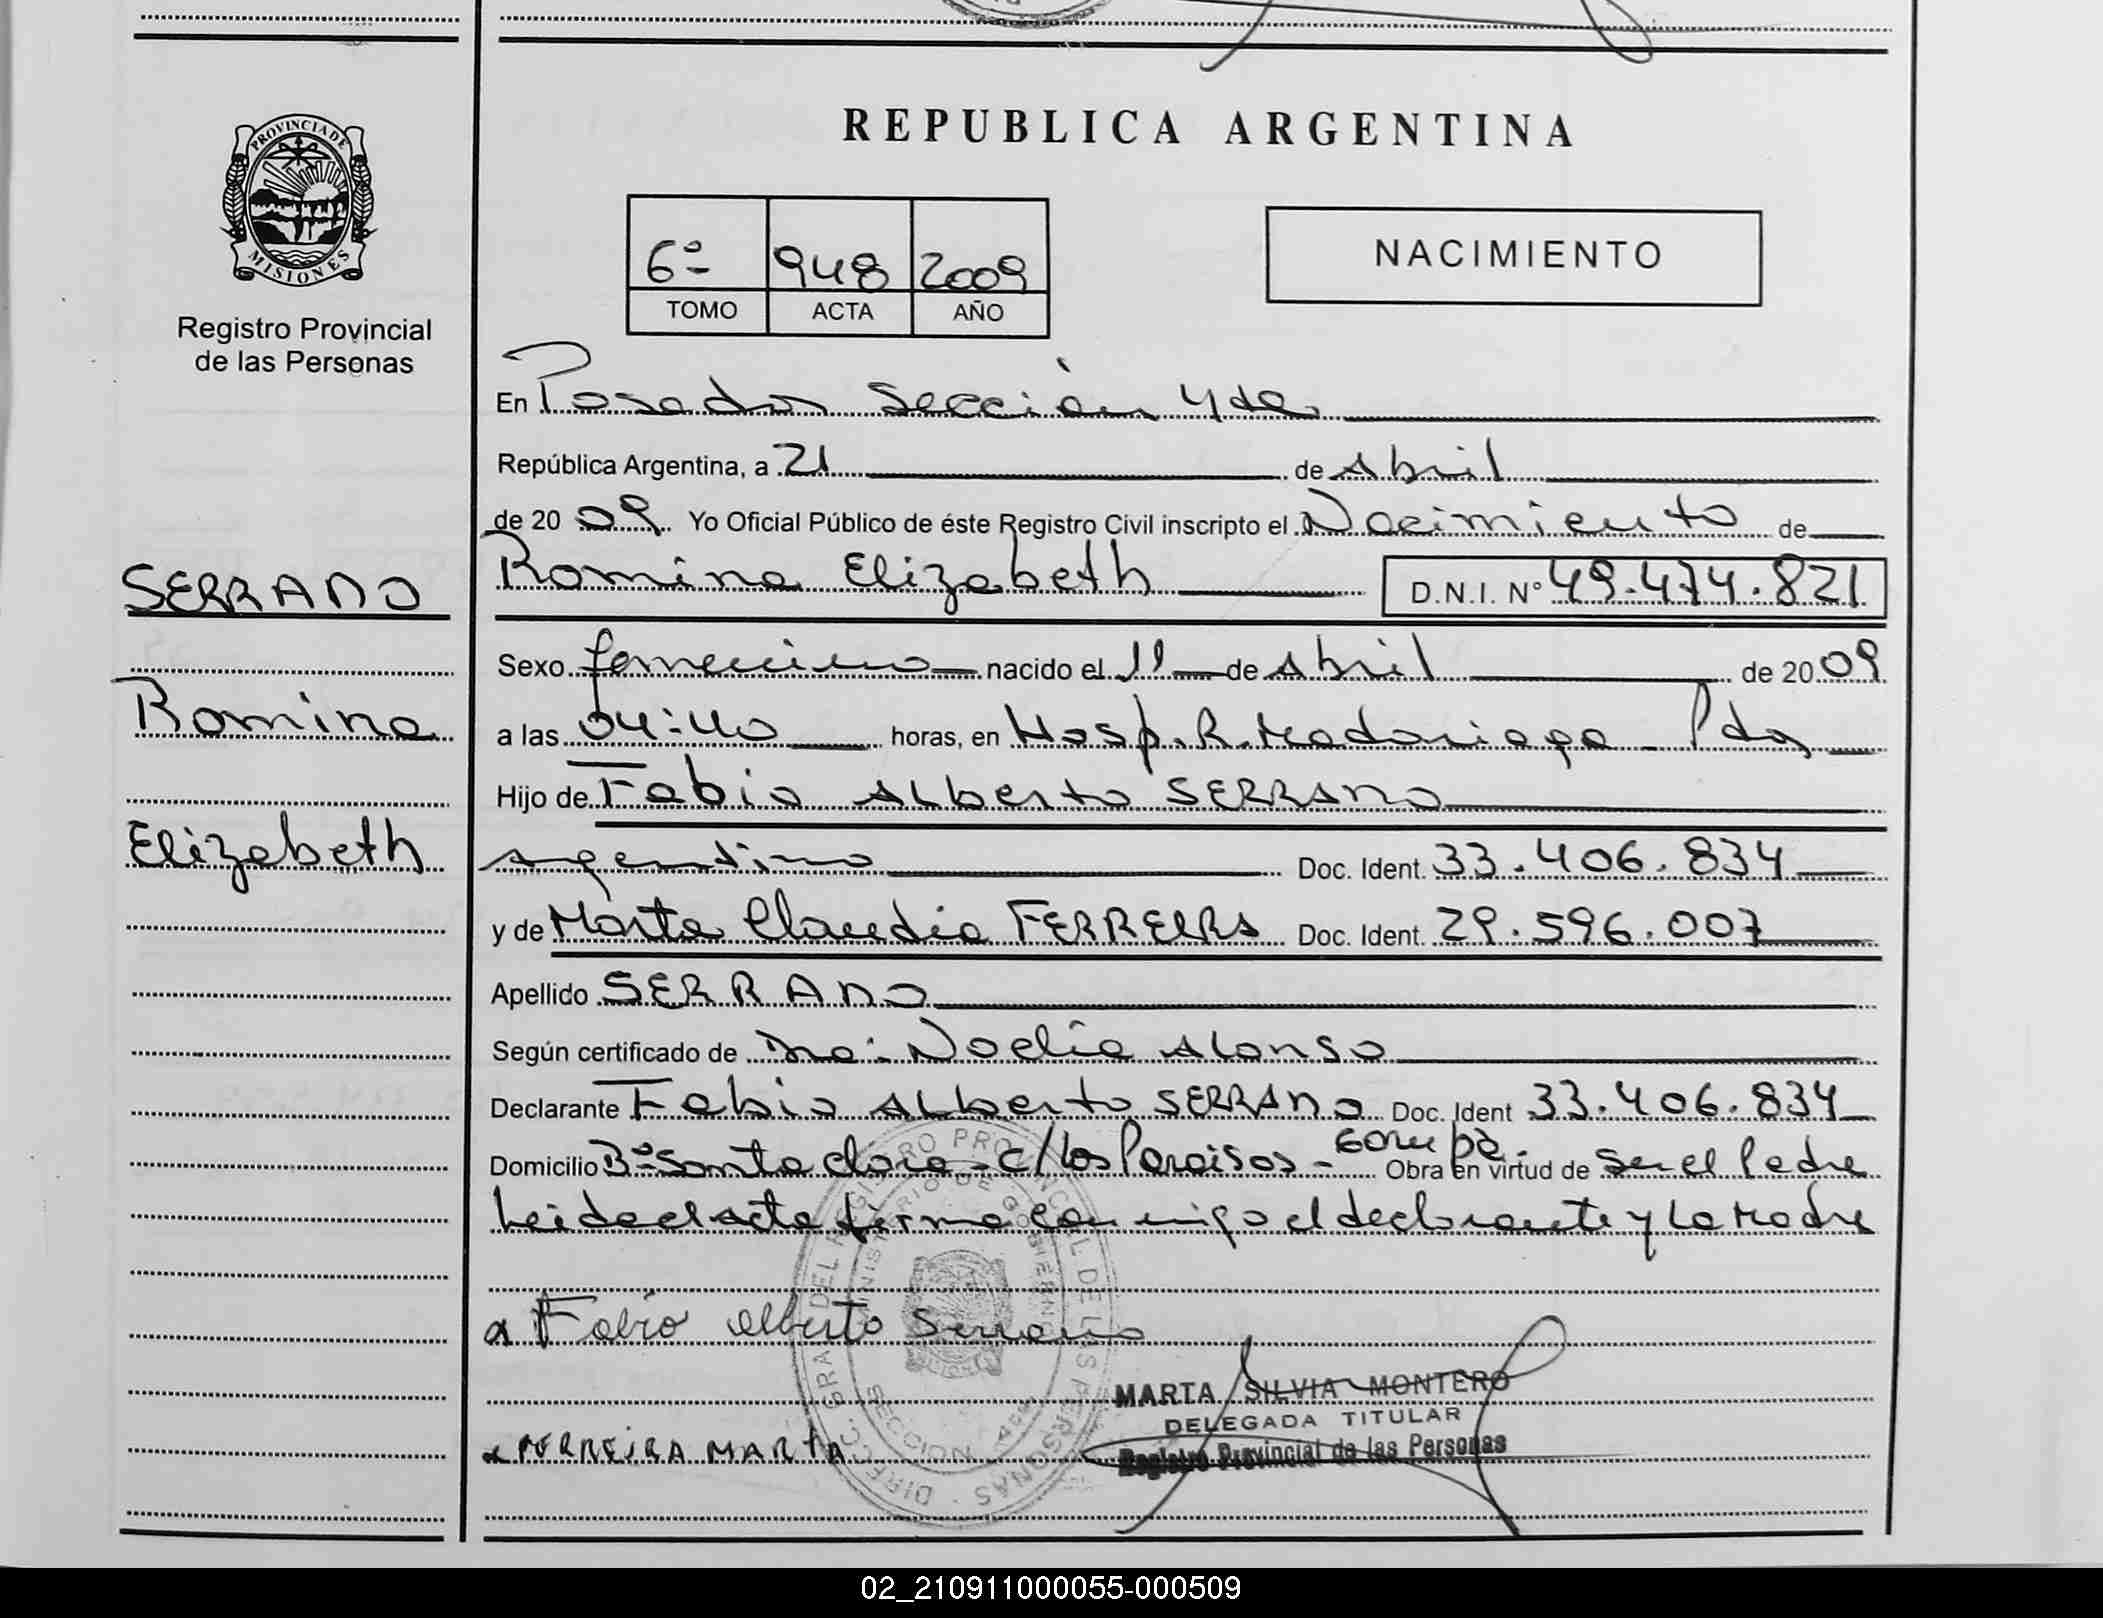 REPUBLICA ARGENTINA
PROVINCIA DE
MISIONES
Registro Provincial
de las Personas
6º 948 2009
TOMO ACTA AÑO
NACIMIENTO
En Posadas Sección 4ta
República Argentina, a 21 de Abril
de 20 09 Yo Oficial Público de éste Registro Civil inscripto el Nacimiento de
Romina Elizabeth D.N.I. Nº 49.474.821
SERRANO
Romina
Elizabeth
Sexo femenino nacido el 11 de Abril de 20 09
a las 04:40 horas, en Hosp. R. Madariaga - Pdas
Hijo de Fabio Alberto SERRANO
Argentino Doc. Ident. 33.406.834
y de Marta Claudia FERREIRA Doc. Ident. 29.596.007
Apellido SERRANO
Según certificado de Dra: Noelia Alonso
Declarante Fabio Alberto SERRANO Doc. Ident 33.406.834
Domicilio Bº Santa Clara - c/ Los Paraisos - Garupá. Obra en virtud de ser el Padre
Leida el acta firma conmigo el declarante y La Madre
Fabio Alberto Serrano
MARTA SILVIA MONTERO
DELEGADA TITULAR
Registro Provincial de las Personas
FERREIRA MARTA
02_210911000055-000509